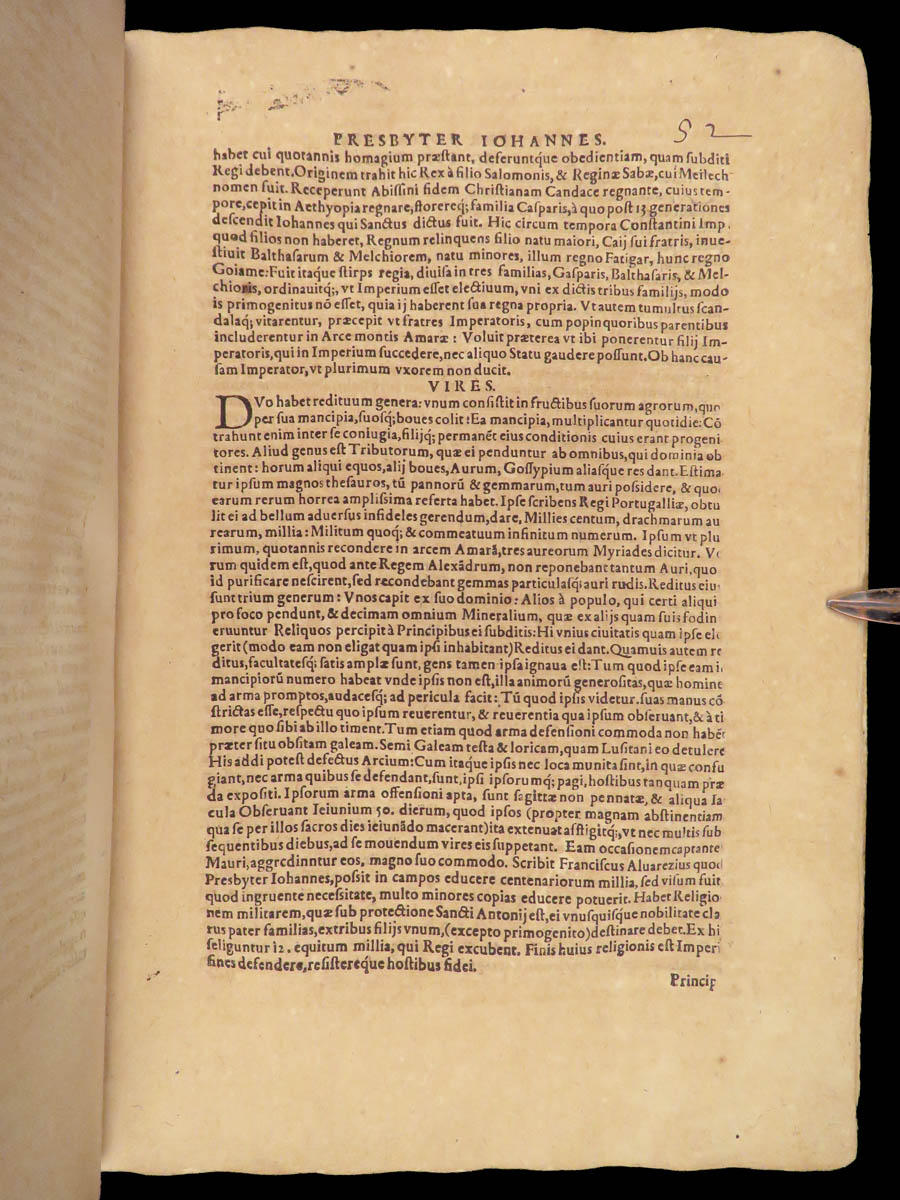 52
PRESBYTER IOHANNES.
habet cui quotannis homagium præstant, deferuntque obedientiam, quam subditi
Regi debent. Originem trahit hic Rex à filio Salomonis, & Reginæ Sabæ, cui Meilech
nomen fuit. Receperunt Abissini fidem Christianam Candace regnante, cuius tem-
pore, cepit in Aethyopia regnare, florereq; familia Casparis, à quo post 13 generationes
descendit Iohannes qui Sanctus dictus fuit. Hic circum tempora Constantini Imp.
quod filios non haberet, Regnum relinquens filio natu maiori, Caij sui fratris, inue-
stiuit Balthasarum & Melchiorem, natu minores, illum regno Fatigar, hunc regno
Goiame: Fuit itaque stirps regia, diuisa in tres familias, Gasparis, Balthasaris, & Mel-
chioris, ordinauitq;, vt Imperium esset electiuum, vni ex dictis tribus familijs, modo
is primogenitus nō esset, quia ij haberent sua regna propria. Vt autem tumultus scan-
dalaq; vitarentur, præcepit vt fratres Imperatoris, cum popinquoribus parentibus
includerentur in Arce montis Amaræ: Voluit præterea vt ibi ponerentur filij Im-
peratoris, qui in Imperium succedere, nec aliquo Statu gaudere possunt. Ob hanc cau-
sam Imperator, vt plurimum vxorem non ducit.
VIRES.
DVo habet redituum genera: vnum consistit in fructibus suorum agrorum, quo
per sua mancipia, suosq; boues colit: Ea mancipia, multiplicantur quotidie: Cō
trahunt enim inter se coniugia, filijq; permanēt eius conditionis cuius erant progeni
tores. Aliud genus est Tributorum, quæ ei penduntur ab omnibus, qui dominia ob
tinent: horum aliqui equos, alij boues, Aurum, Gossypium aliasque res dant. Estima
tur ipsum magnos thesauros, tū pannorū & gemmarum, tum auri possidere, & quo
earum rerum horrea amplissima referta habet. Ipse scribens Regi Portugalliæ, obtu
lit ei ad bellum aduersus infideles gerendum, dare, Millies centum, drachmarum au
rearum, millia: Militum quoq; & commeatuum infinitum numerum. Ipsum vt plu
rimum, quotannis recondere in arcem Amarā, tres aureorum Myriades dicitur. Ve
rum quidem est, quod ante Regem Alexādrum, non reponebant tantum Auri, quo
id purificare nescirent, sed recondebant gemmas particulasq; auri rudis. Reditus eiu
sunt trium generum: Vnos capit ex suo dominio: Alios à populo, qui certi aliqui
pro foco pendunt, & decimam omnium Mineralium, quæ ex alijs quam suis fodin
eruuntur Reliquos percipit à Principibus ei subditis: Hi vnius ciuitatis quam ipse ele
gerit (modo eam non eligat quam ipsi inhabitant) Reditus ei dant. Quamuis autem re
ditus, facultatesq; satis amplæ sunt, gens tamen ipsa ignaua est: Tum quod ipse eam i
mancipiorū numero habeat vnde ipsis non est, illa animorū generositas, quæ homine
ad arma promptos, audacesq; ad pericula facit: Tū quod ipsis videtur. suas manus cō
strictas esse, respectu quo ipsum reuerentur, & reuerentia qua ipsum obseruant, & à ti
more quo sibi ab illo timent. Tum etiam quod arma defensioni commoda non habēt
præter situ obsitam galeam. Semi Galeam testa & loricam, quam Lusitani eo detulere
His addi potest defectus Arcium: Cum itaque ipsis nec loca munita sint, in quæ confu
giant, nec arma quibus se defendant, sunt, ipsi ipsorumq; pagi, hostibus tanquam præ
da expositi. Ipsorum arma offensioni apta, sunt sagittæ non pennatæ, & aliqua Ia
cula Obseruant Ieiunium 50. dierum, quod ipsos (propter magnam abstinentiam
qua se per illos sacros dies ieiunādo macerant) ita extenuat affligitq;, vt nec multis sub
sequentibus diebus, ad se mouendum vires eis suppetant. Eam occasionem captante
Mauri, aggrcdinntur eos, magno suo commodo. Scribit Franciscus Aluarezius quod
Presbyter Iohannes, possit in campos educere centenariorum millia, sed visum fuit
quod ingruente necessitate, multo minores copias educere potuerit. Habet Religio
nem militarem, quæ sub protectione Sancti Antonij est, ei vnusquisque nobilitate cla
rus pater familias, ex tribus filijs vnum, (excepto primogenito) destinare debet. Ex hi
seliguntur 12. equitum millia, qui Regi excubent. Finis huius religionis est Imperi
fines defendere, resistereque hostibus fidei.
Princip